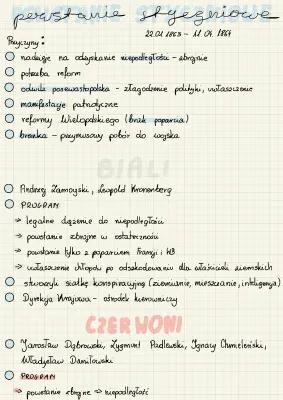 powstanie styczniowe
22.01.1863 – 11.04.1864
Przyczyny:
nadzieje na odzyskanie niepodległości – zbrojnie
potrzeba reform
odwilż posewastopolska – złagodzenie polityki, uwłaszczenie
manifestacje patriotyczne
reformy Wielopolskiego (brak poparcia)
branka – przymusowy pobór do wojska
BIALI
Andrzej Zamoyski, Leopold Kronenberg
PROGRAM
⇒ legalne dążenie do niepodległości
⇒ powstanie zbrojne w ostateczności
⇒ powstanie tylko z poparciem Francji i WB
⇒ uwłaszczenie chłopów po odszkodowaniu dla właścicieli ziemskich
stworzyli siatkę konspiracyjną (ziemianie, mieszczanie, inteligencja)
Dyrekcja Krajowa – ośrodek kierowniczy
CZERWONI
Jarosław Dąbrowski, Zygmunt Padlewski, Ignacy Chmieleński,
Władysław Daniłowski
PROGRAM
⇒ powstanie zbrojne ⇒ niepodległość